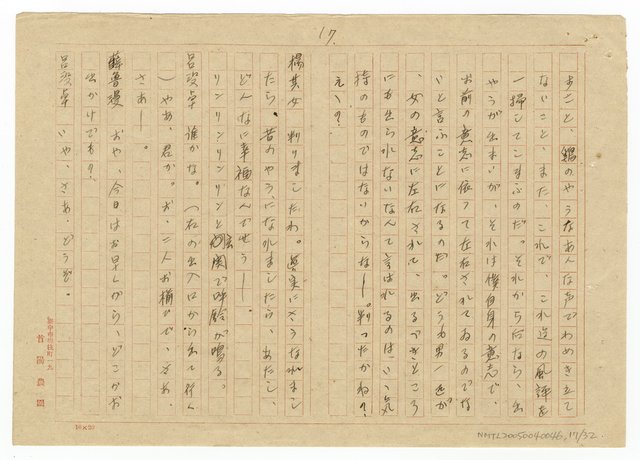 17.
まこと、鶏のやうなあんな声でわめき立て
ないこと、また、これで、これ迄の風評を
一掃してこますのだ。それからになら、出
やうが出まいが、それは僕自身の意志で、
お前の意志に依って左右されてゐるのでな
いと言ふことになるのだ。どうも男一匹が
、女の意志に左右されて、出るべきところ
にも出られないなんて言はれるのはいゝ気
持のものではないからな——。判ったかね？
えゝの？
楊其女 判りましたわ。真実にさうなれまし
たら、昔のやうになれましたら、あたし、
どんなに幸福なんでせう——
リンリンリンリンと玄関で呼鈴が鳴る。
呂奴卓 誰かな。（右の出入口から出て行く
）やあ、君か。お、二人お揃ひで、さあ、
さあ——。
蘇魯漫 おや、今日はお早くから、どこかお
出かけですの？
呂奴卓 いや、さあ、どうぞ。
臺中市梅枝町九
首陽農園
10×20
NMTL20050040046,17/32.